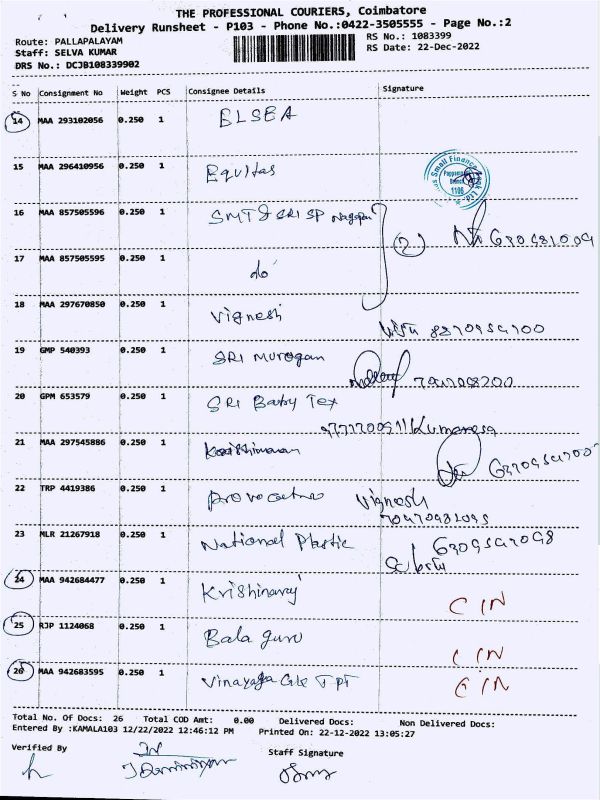 THE PROFESSIONAL COURIERS, Coimbatore
Delivery Runsheet - P103 - Phone No.:0422-3505555 - Page No.:2
Route: PALLAPALAYAM RS No.: 1083399
Staff: SELVA KUMAR RS Date: 22-Dec-2022
DRS No.: DCJB108339902
S No Consignment No Weight PCS Consignee Details Signature
14 MAA 293102056 0.250 1 BLSEA
15 MAA 296410956 0.250 1 Equitas
Small Finance
1106
16 MAA 857505596 0.250 1 SMT & SRI SP
17 MAA 857505595 0.250 1 do
18 MAA 297670850 0.250 1 Vignesh
19 GMP 540393 0.250 1 SRI Murogan
20 GPM 653579 0.250 1 SRI Baby Tex
21 MAA 297545886 0.250 1
22 TRP 4419386 0.250 1 Vignesh
23 MLR 21267918 0.250 1 National Plastic
24 MAA 942684477 0.250 1 Krishinaraj CIN
25 RJP 1124068 0.250 1 Bala guru CIN
26 MAA 942683595 0.250 1 Vinayaga TPT CIN
Total No. Of Docs: 26 Total COD Amt: 0.00 Delivered Docs: Non Delivered Docs:
Entered By :KAMALA103 12/22/2022 12:46:12 PM Printed On: 22-12-2022 13:05:27
Verified By Staff Signature